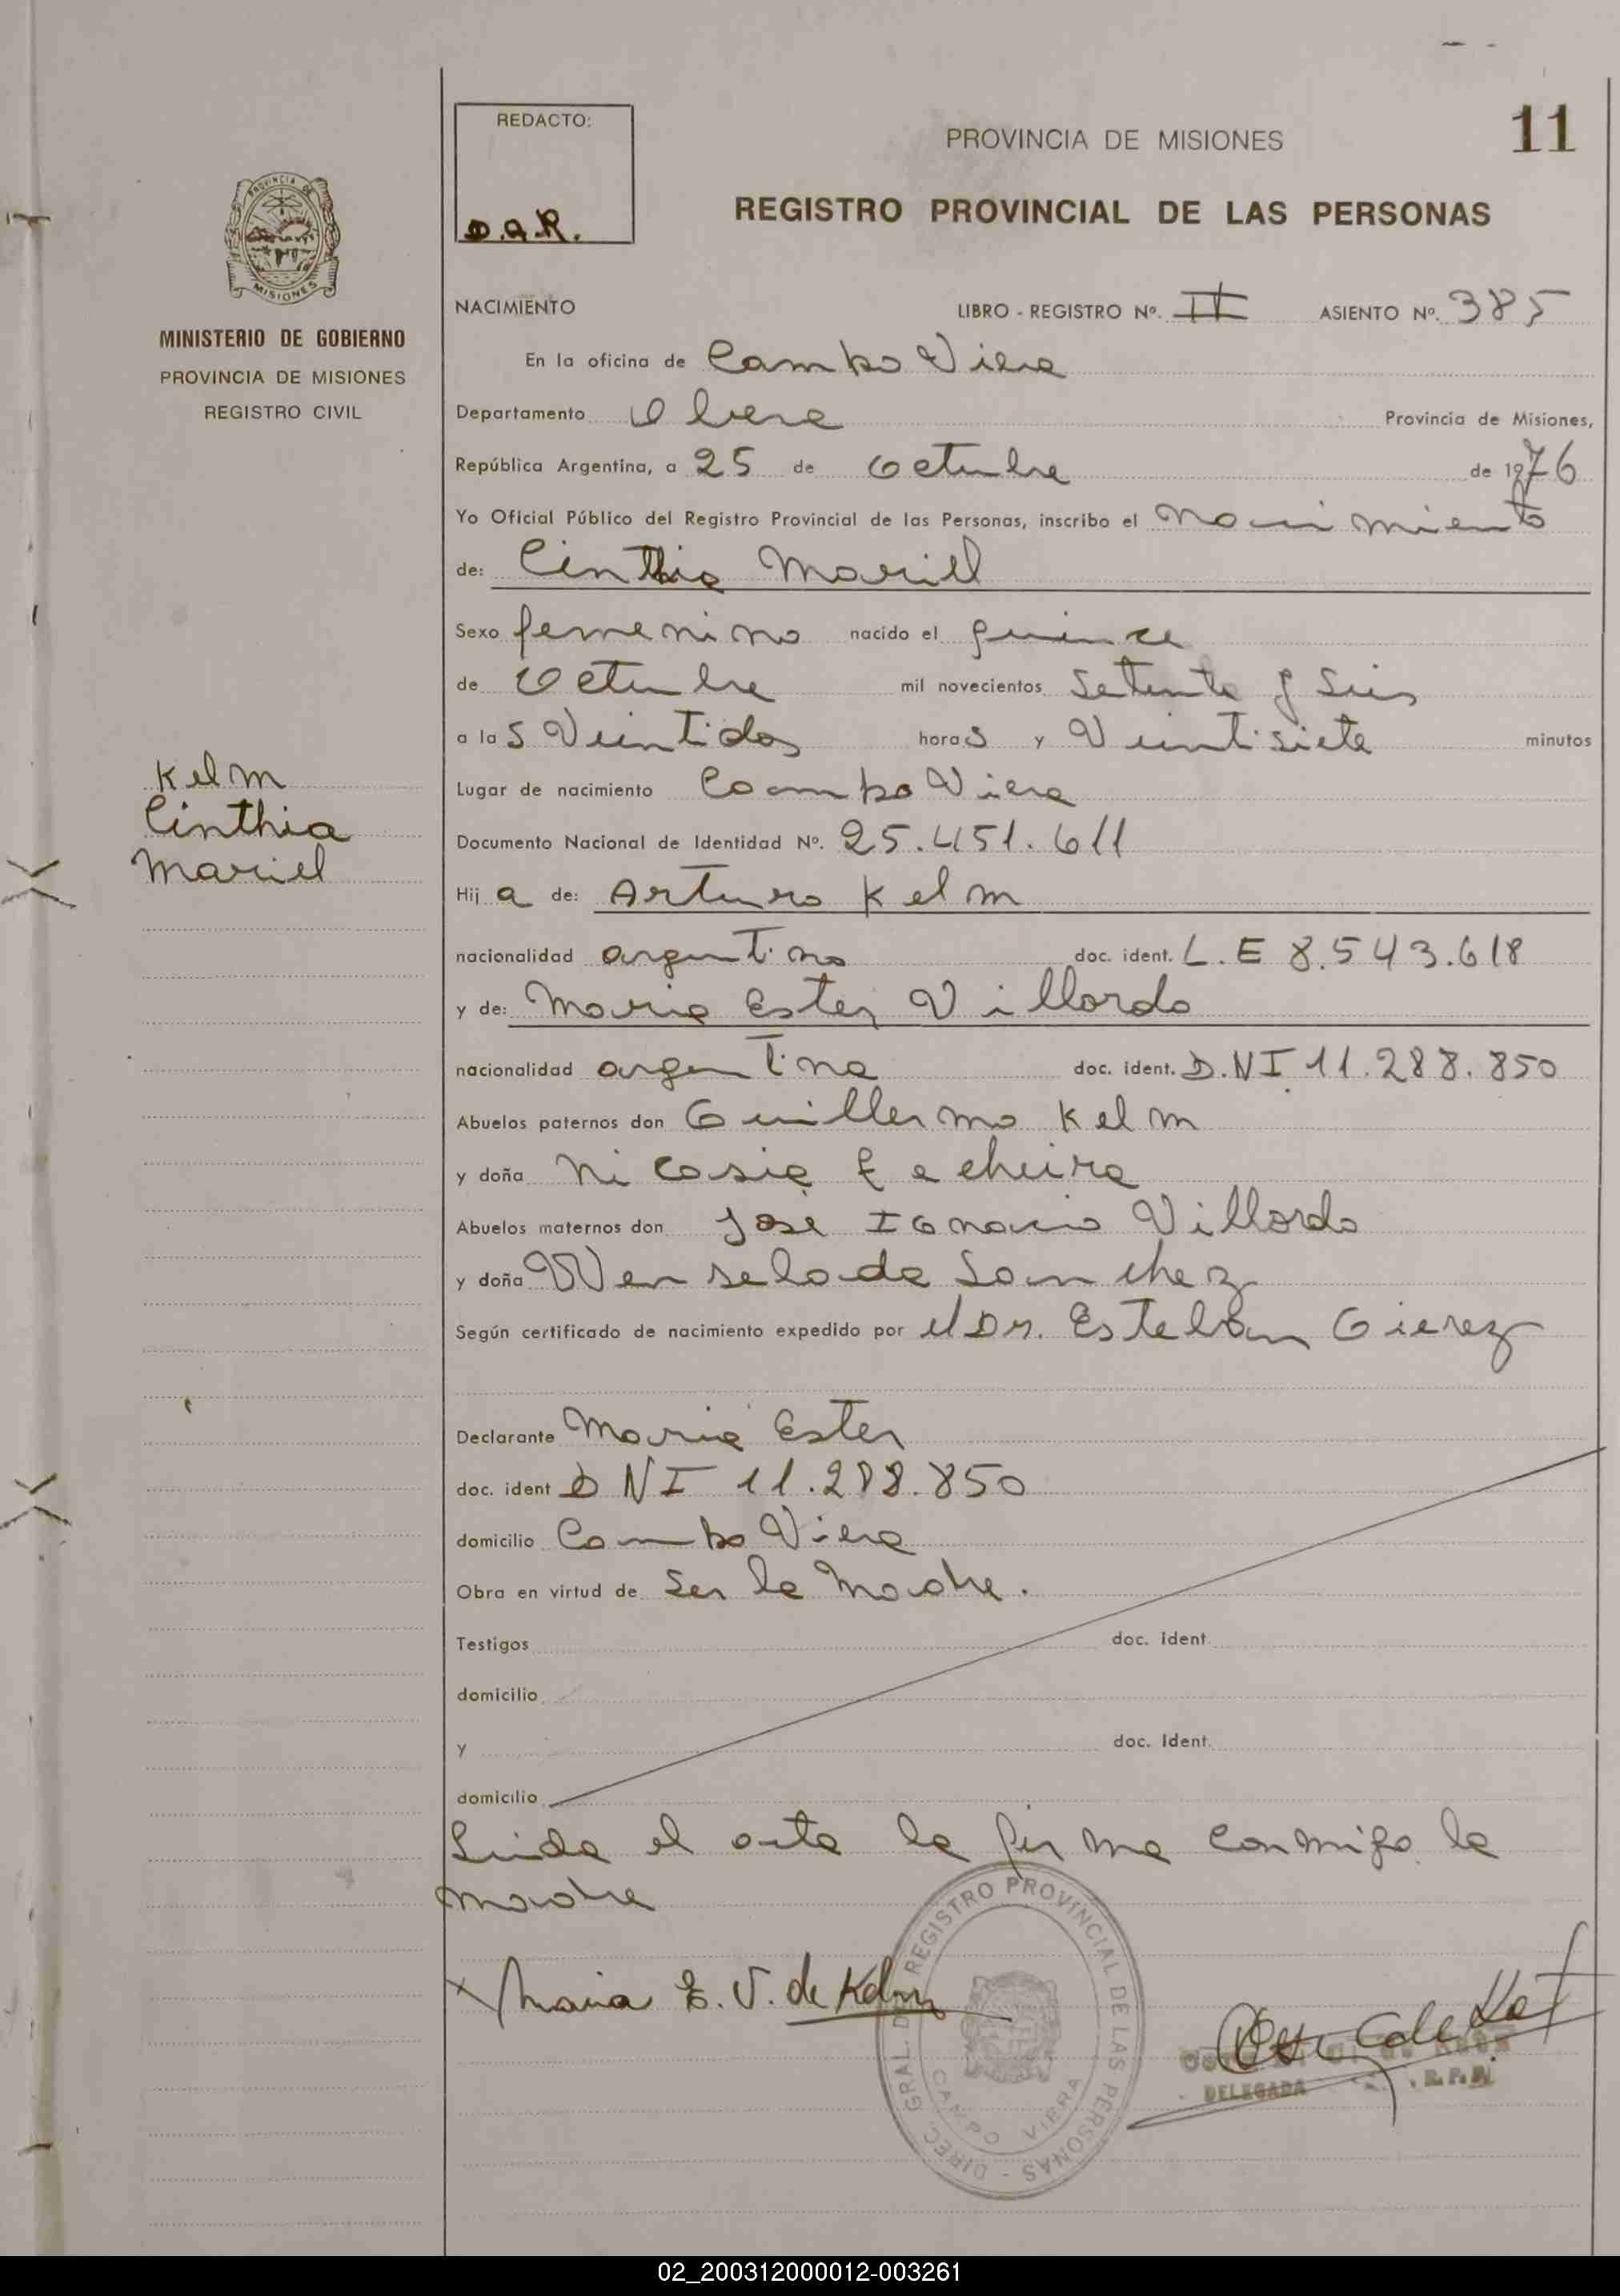 REDACTO:
D.G.R.
PROVINCIA DE MISIONES
11
REGISTRO PROVINCIAL DE LAS PERSONAS
PROVINCIA DE
MISIONES
MINISTERIO DE GOBIERNO
PROVINCIA DE MISIONES
REGISTRO CIVIL
NACIMIENTO LIBRO - REGISTRO Nº. II ASIENTO Nº. 385
En la oficina de Campo Viera
Departamento Obera Provincia de Misiones,
República Argentina, a 25 de Octubre de 1976
Yo Oficial Público del Registro Provincial de las Personas, inscribo el Nacimiento
de: Cinthia Mariel
Sexo femenino nacido el quince
de Octubre mil novecientos Setenta y Seis
a las Veintidos horas y Veintisiete minutos
Kelm
Cinthia
Mariel
Lugar de nacimiento Campo Viera
Documento Nacional de Identidad Nº. 25.451.611
Hija de: Arturo Kelm
nacionalidad argentino doc. ident. L.E 8.543.618
y de: Maria Ester Villordo
nacionalidad argentina doc. ident. D.NI 11.288.850
Abuelos paternos don Guillermo Kelm
y doña Nicasia
Abuelos maternos don José Ignacio Villordo
y doña Wenselada Sanchez
Según certificado de nacimiento expedido por el Dr. Esteban Gierez
Declarante Maria Ester
doc. ident DNI 11.288.850
domicilio Campo Viera
Obra en virtud de Ser la Madre.
Testigos doc. ident.
domicilio
y doc. Ident.
domicilio
Leida el acta la firma conmigo la
madre
Maria E. V. de Kelm
DIREC. GRAL. DEL REGISTRO PROVINCIAL DE LAS PERSONAS -
CAMPO VIERA
DELEGADA R.P.P.
02_200312000012-003261